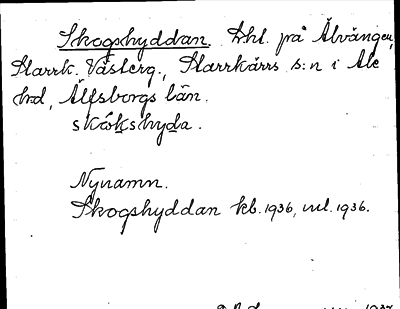 Skogshyddan. Lht. på Älvängen,
Starrk. Västerg., Starrkärrs s:n i Ale
hd, Älfsborgs län.
skókshyda.
Nynamn.
Skogshyddan kb. 1936, ml. 1936.